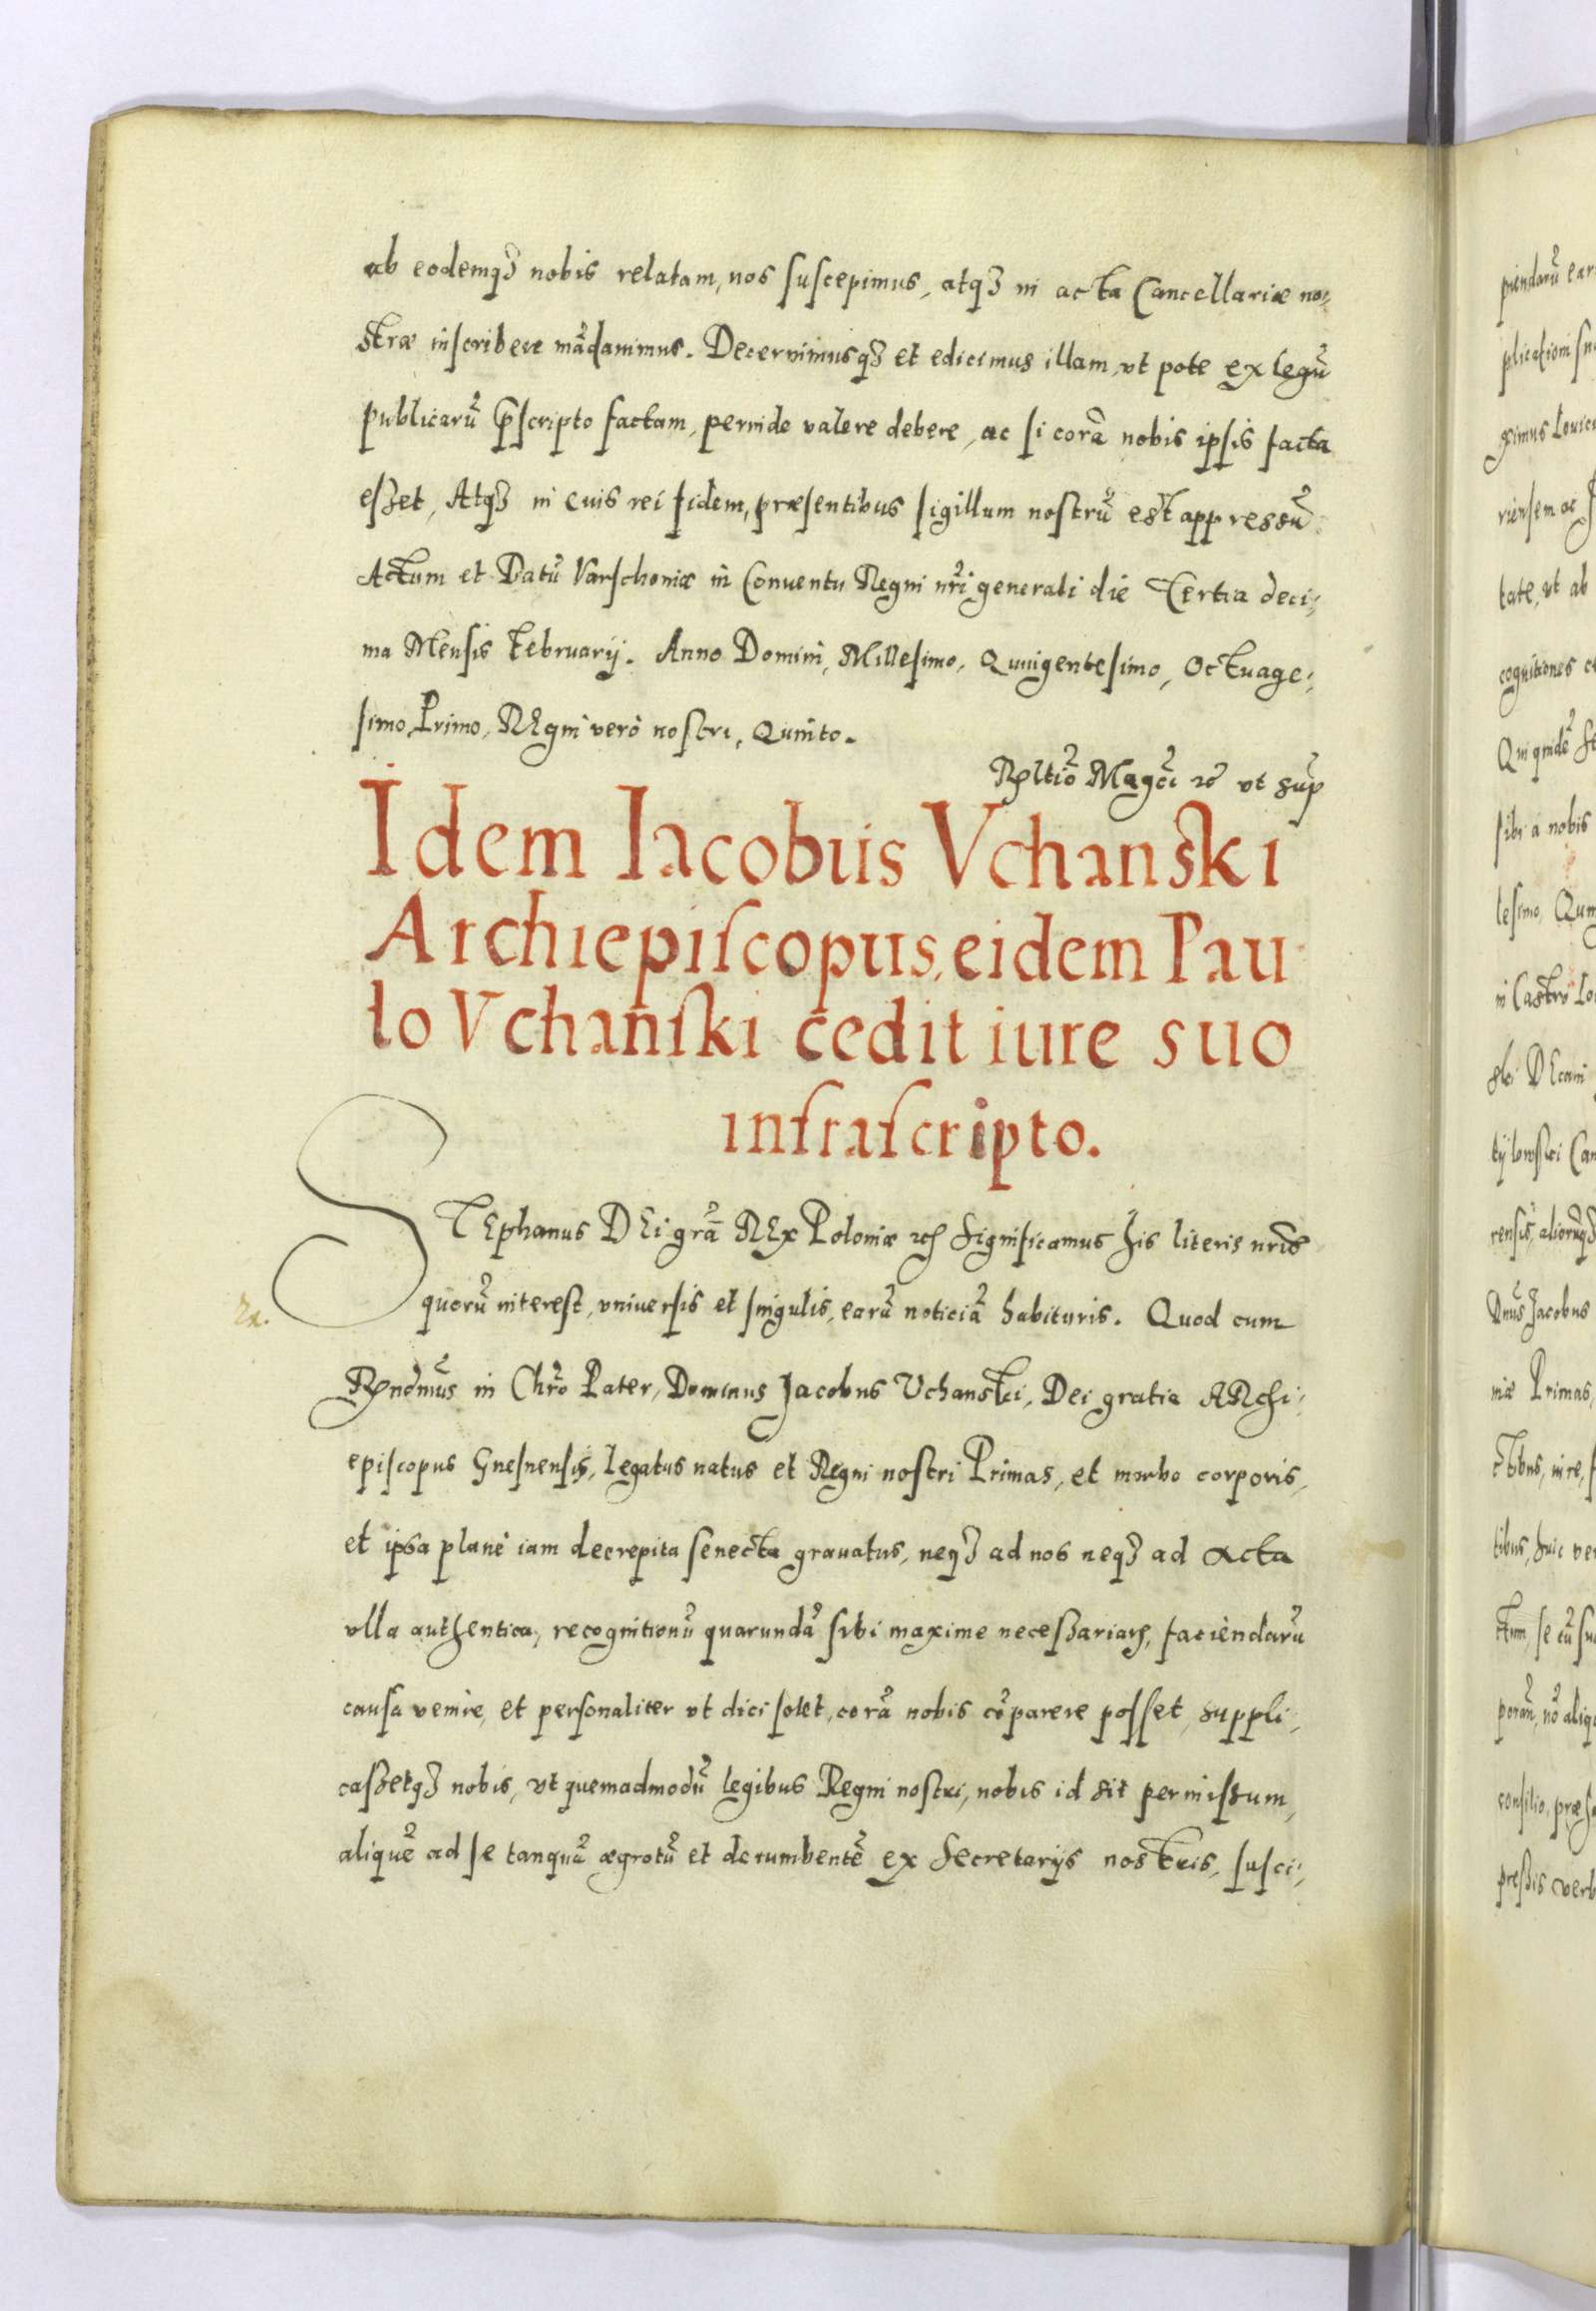 ab eodemqꝫ nobis relatam, nos suscepimus, atqꝫ in acta Cancellariæ no⸗
stræ inscribere mãdauimus. Decernimusqꝫ et edicimus illam, vt pote ex legũ
publicarũ p̄scripto factam, perinde valere debere, ac si corã nobis ipsis facta
esset, Atqꝫ in cuis rei fidem, præsentibus sigillum nostrũ est appressũ
Actum et Datũ Varschouiæ in Conuentu Regni nr̃i generali die Tertia deci⸗
ma Mensis Februarij. Anno Domini, Millesimo, Quingentesimo, Octuage⸗
simo, Primo, REgni verò nostri, Quinto.
Rltio Magci ut sup
Idem Iacobus Vchanski
Archiepiscopus, eidem Pau
lo Vchanski cedit iure suo
infrascripto.
STEphanus DEi grã REx Poloniæ ꝛc̃ Significamus his literis nr̃is
quorũ interest, vniuersis et singulis, earũ noticiã habituris. Quod cum
Rñdmus in Chrõ Pater, Dominus Jacobus Vchanski, Dei gratia ARchi⸗
episcopus Gnesnensis, Legatus natus et Regni nostri Primas, et morbo corporis,
et ipsa planè iam decrepita senecta grauatus, neqꝫ ad nos neqꝫ ad acta
vlla authentica, recognitionũ quarundã sibi maxime necessariarꝫ, faciendarũ
causa venire, et personaliter vt dici solet, corã nobis cõparere posset, suppli⸗
cassetqꝫ nobis, vt quemadmodũ legibus Regni nostri, nobis id sit permissum,
aliquẽ ad se tanquã ægrotũ et decumbentẽ ex Secretarijs nostris, susci⸗
piendarũ ear
gximus Louici
tate, vt ab
cognitiones
Qui quidẽ
sibi a nobis
in Castro Lo
Dnũs Jacobus
niæ Primas,
consilio, præ
pressis verb